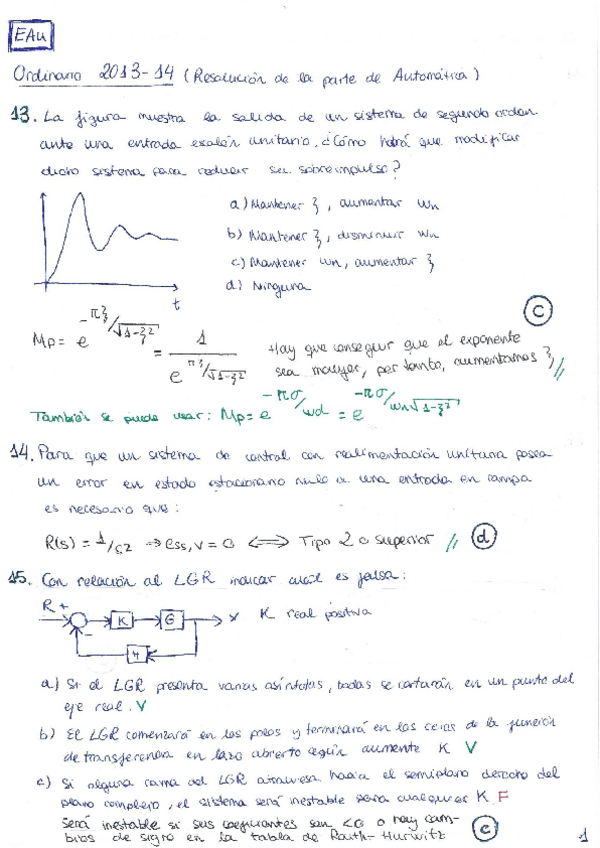 EAu
Ordinario 2013-14 (Resolución de la parte de Automática)
13. La figura muestra la salida de un sistema de segundo orden
ante una entrada escalón unitario, ¿Cómo habrá que modificar
dicho sistema para reducir su sobreimpulso?
a) Mantener ξ, aumentar wn
b) Mantener ξ, disminuir wn
c) Mantener wn, aumentar ξ
d) Ninguna
t
C
Mp = e^(-πξ/√(1-ξ²)) = 1 / e^(πξ/√(1-ξ²))
Hay que conseguir que el exponente
sea mayor, por tanto, aumentamos ξ //
También se puede usar: Mp = e^(-πσ/wd) = e^(-πσ/wn√(1-ξ²))
14. Para que un sistema de control con realimentación unitaria posea
un error en estado estacionario nulo a una entrada en rampa
es necesario que:
R(s) = 1/s2 → ess,v = 0 ⟺ Tipo 2 o superior // d
15. Con relación al LGR indicar cuál es falsa:
R + - K G X K real positiva
H
a) Si el LGR presenta varias asíntotas, todas se cortarán en un punto del
eje real. V
b) El LGR comenzará en los polos y terminará en los ceros de la función
de transferencia en lazo abierto según aumente K V
c) Si alguna rama del LGR atraviesa hacia el semiplano derecho del
plano complejo, el sistema será inestable para cualquier K F
será inestable si sus coeficientes son <0 o hay cam-
bios de signo en la tabla de Routh-Hurwitz C
1